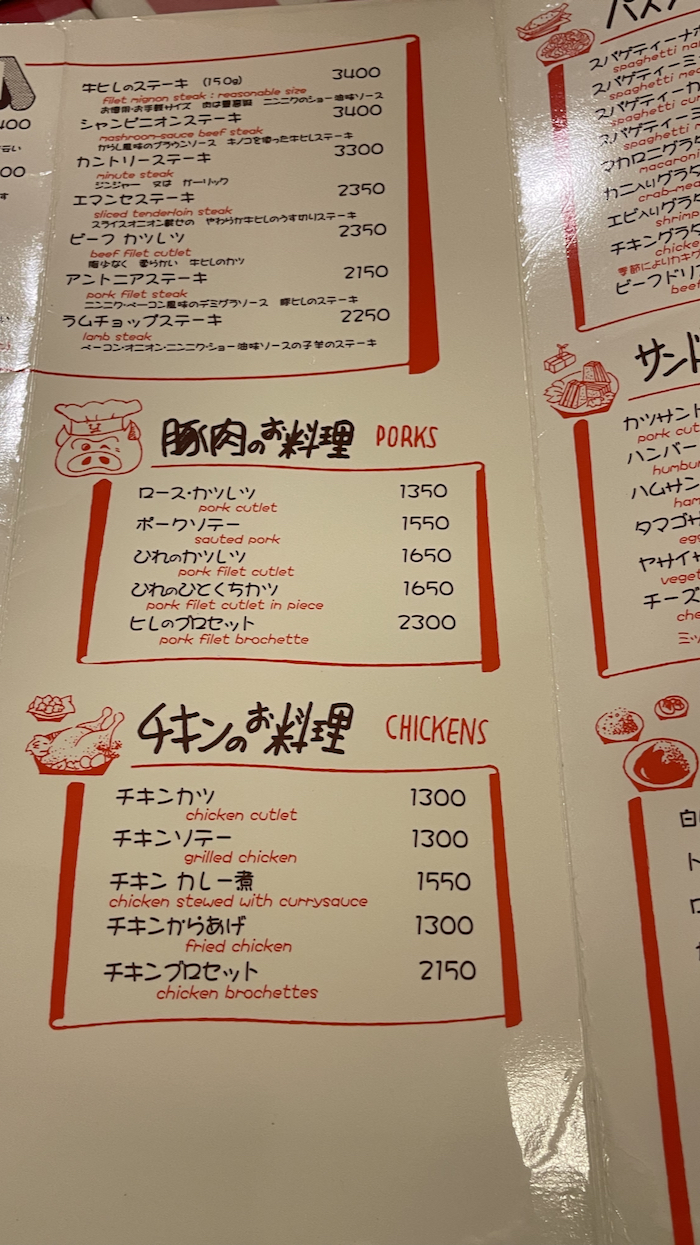 牛ヒレのステーキ (150g) 3400
filet mignon steak : reasonable size
お徳用・お手軽サイズ 肉は最高級 ニンニクのショー油味ソース
シャンピニオンステーキ 3400
mashroom-sauce beef steak
からし風味のブラウンソース キノコを使った牛ヒレステーキ
カントリーステーキ 3300
minute steak
ジンジャー 又は ガーリック
エマンセステーキ 2350
sliced tenderloin steak
スライスオニオン載せの やわらか牛ヒレのうす切りステーキ
ビーフ カツレツ 2350
beef filet cutlet
脂少なく 柔らかい 牛ヒレのカツ
アントニアステーキ 2150
pork filet steak
ニンニク・ベーコン風味のデミグラソース 豚ヒレのステーキ
ラムチョップステーキ 2250
lamb steak
ベーコン・オニオン・ニンニク・ショー油味ソースの子羊のステーキ
豚肉のお料理 PORKS
ロース・カツレツ 1350
pork cutlet
ポークソテー 1550
sauted pork
ひれのカツレツ 1650
pork filet cutlet
ひれのひとくちカツ 1650
pork filet cutlet in piece
ヒレのブロセット 2300
pork filet brochette
チキンのお料理 CHICKENS
チキンカツ 1300
chicken cutlet
チキンソテー 1300
grilled chicken
チキン カレー煮 1550
chicken stewed with currysauce
チキンからあげ 1300
fried chicken
チキンブロセット 2150
chicken brochettes
パスタ
スパゲティーナポ
spaghetti na
スパゲティーミー
spaghetti mea
スパゲティーカ
spaghetti cu
スパゲティーミ
spaghetti
マカロニグラタ
macaroni
カニ入りグラタ
crab-mea
エビ入りグラタ
shrimp
チキングラタ
chicke
季節によりカキグ
ビーフドリア
beef
サンド
カツサンド
pork cut
ハンバー
humbur
ハムサン
ham
タマゴサ
egg
ヤサイサ
veget
チーズ
che
ミッ